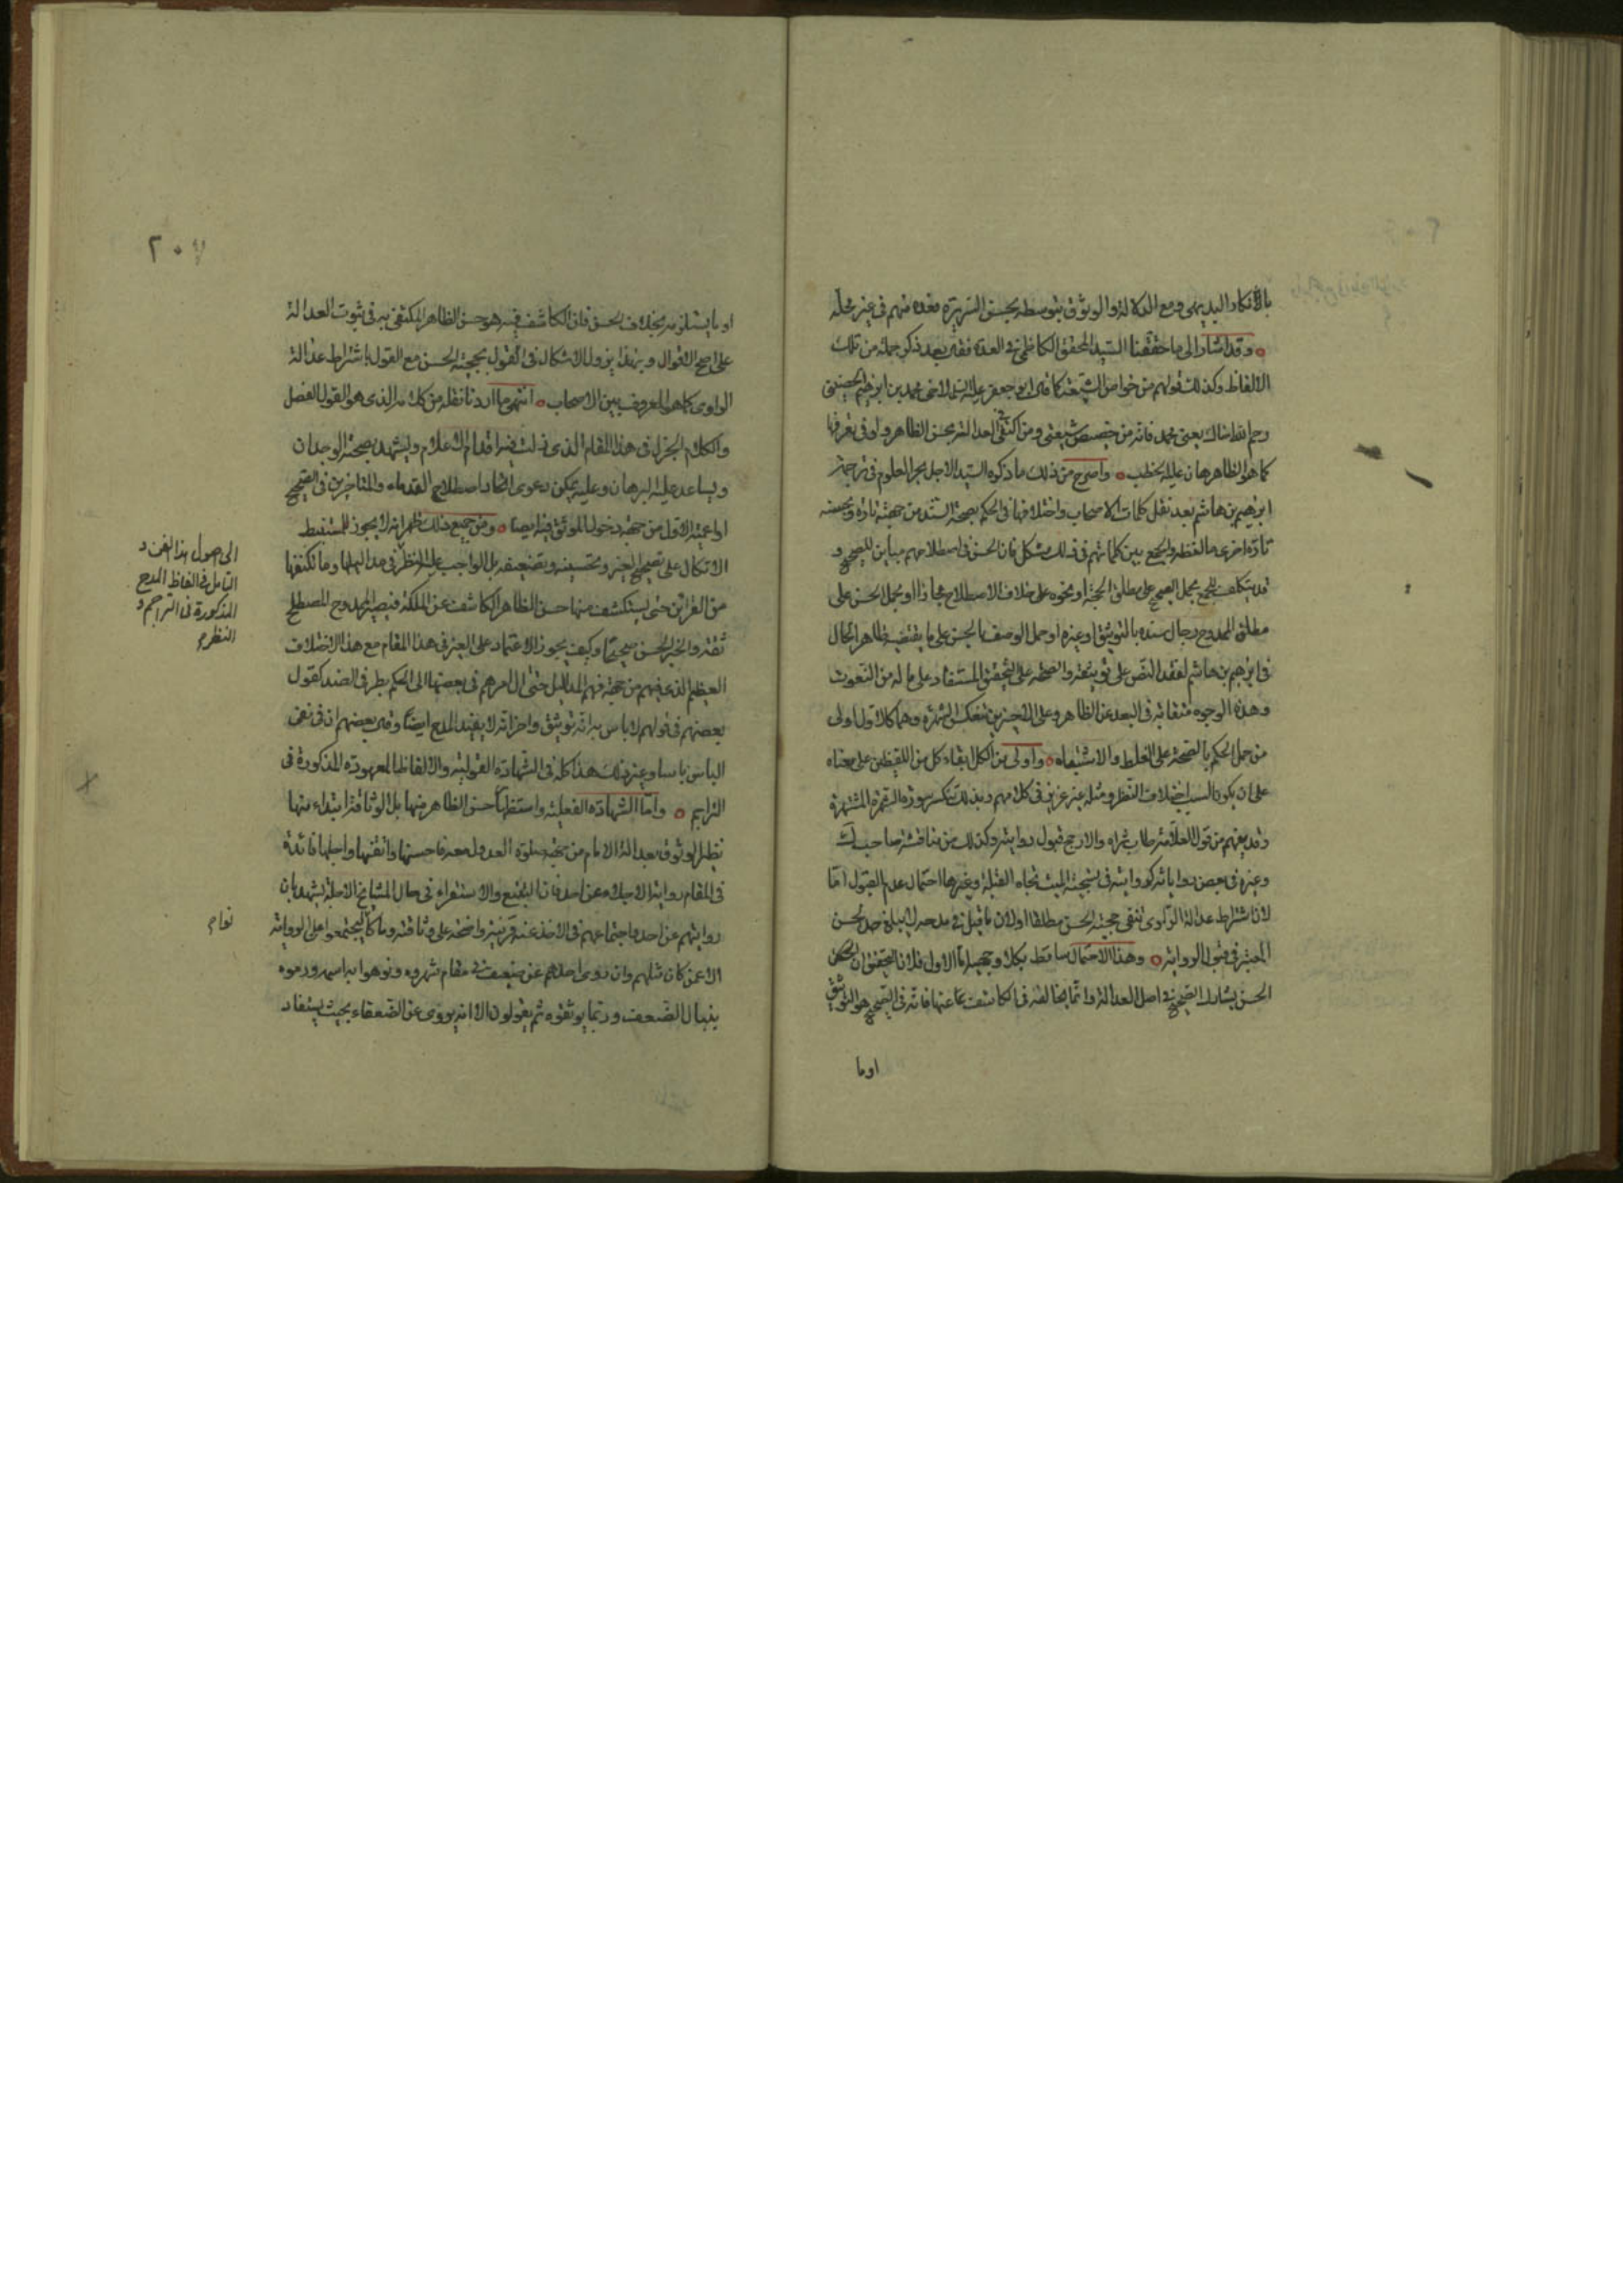 بالانكار البديهي ومع الدلالة والوثوق بتوسطه بحسن السريرة فعده منهم في غير محله
وقد اشار الى ما حققنا السيد المحقق الكاظمي في العدة فقال بعد ذكر جملة من تلك
الالفاظ وكذلك قولهم من خواص الشيعة كما قال ابو جعفر عليه السلام لاخي محمد بن ابرهيم الحضيني
رحم الله اخاك يعني محمد فانه من خصيص شيعتي ومن اكتفى في العدالة بحسن الظاهر واو في تعرفها
كما هو الظاهر هان عليه الخطب واصرح من ذلك ما ذكره السيد الاجل بحر العلوم في ترجمة
ابرهيم بن هاشم بعد نقل كلمات الاصحاب واختلافها في الحكم بصحة السند من جهته تارة وبحسنه
تارة اخرى ما لفظه والجمع بين كلماتهم في ذلك مشكل فان الحسن في اصطلاحهم مباين للصحيح و
قد يتكلف للجمع بحمل الصحيح على مطلق الحجة او نحوه على خلاف الاصطلاح مجازا او بحمل الحسن على
مطلق الممدوح رجال سنده بالتوثيق او غيره او حمل الوصف بالحسن على ما يقتضيه ظاهر الحال
في ابرهيم بن هاشم لفقد النص على توثيقه والصحة على التحقيق المستفاد على ما له من النعوت
وهذه الوجوه متقاربة في البعد عن الظاهر وعلى الاخيرين تنعكس الثمرة وهما كالاول اولى
من حمل الحكم بالصحة على الغلط والاشتباه واولى من الكل بقاء كل من اللفظين على معناه
على ان يكون السبب اختلاف النظر ومثله غير عزيز في كلامهم وبذلك تنكسر سورة الثمرة المشتهرة
وقد يفهم من قول العلامة طاب ثراه والارجح قبول روايته وكذلك من مناقشة صاحب ك
وغيره في بعض رواياته كروايته في تسجية الميت تجاه القبلة وغيرها احتمال عدم القبول اما
لان اشتراط عدالة الراوي تنفي حجية الحسن مطلقا او لان ما قيل في مدحه لا يبلغ حد الحسن
المعتبر في قبول الرواية وهذا الاحتمال ساقط بكلا وجهيه اما الاول فلان التحقيق ان الحسن
الحسن يشارك الصحيح في اصل العدالة وانما يخالفه في الكاشف عنها فانه في الصحيح هو التوثيق
او ما
٢٠٧
او ما يستلزمه بخلاف الحسن فان الكاشف فيه هو حسن الظاهر المكتفى به في ثبوت العدالة
على اصح الاقوال وبهذا يزول الاشكال في القول بحجية الحسن مع القول باشتراط عدالة
الراوي كما هو المعروف بين الاصحاب انتهى ما اردنا نقله من كلامه الذي هو القول الفصل
والكلام الجزل في هذا المقام الذي زلت فيه اقدام الاعلام ويشهد بصحته الوجدان
ويساعد عليه البرهان وعليه يمكن دعوى اتحاد اصطلاح القدماء والمتاخرين في الصحيح
او اعميته الاول من جهة دخول الموثق فيه ايضا ومن جميع ذلك ظهر انه لا يجوز للمستنبط
الاتكال على تصحيح الغير وتحسينه وتضعيفه بل الواجب عليه النظر في مداليلها وما تكتنفها
الى اصول هذا الفن و
التامل في الفاظ المدح
المذكورة في التراجم و
النظر
من القرائن حتى يستكشف منها حسن الظاهر الكاشف عن الملكة فيصير الممدوح المصطلح
ثقة والخبر الحسن صحيحا وكيف يجوز الاعتماد على الغير في هذا المقام مع هذا الاختلاف
العظيم الذي فيهم من جهة فهم المداليل حتى ال امرهم في بعضها الى الحكم بطرفي الضد كقول
بعضهم في قولهم لا باس به انه توثيق واخر انه لا يفيد المدح ايضا وقال بعضهم ان في نفي
الباس باسا وغير ذلك هذا كله في الشهادة القولية والالفاظ المعهودة المذكورة في
التراجم واما الشهادة الفعلية واستظهار حسن الظاهر منها بل الوثاقة ابتداء منها
نظير الوثوق بعدالة الامام من جهة صلوة العدول معه فاحسنها واتقنها واجلها فائدة
في المقام رواية الاجلاء عن احد فان التتبع والاستقراء في حال المشايخ الاجلة يشهد بان
روايتهم عن احد واجتماعهم في الاخذ عنه قرينة واضحة على وثاقته وما كانوا ليجتمعوا على الرواية
الا عمن كان مثلهم وان روى احدهم عن ضعيف في مقام شهروه ونوهوا باسمه ورموه
بنبال الضعف وربما يوثقوه ثم يقولون الا انه يروي عن الضعفاء بحيث يستفاد